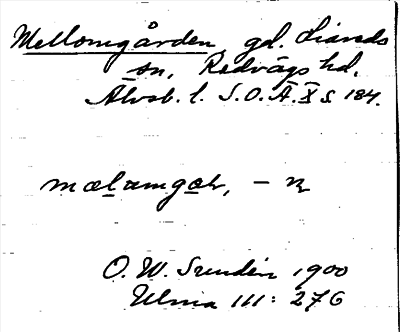 Mellomgården, gd. Liareds
sn, Redvägs hd.
Älvsb. l. S.O.Ä. X s 184.
mælamgær, – n
O. W. Sundén 1900
Ulma 111: 276